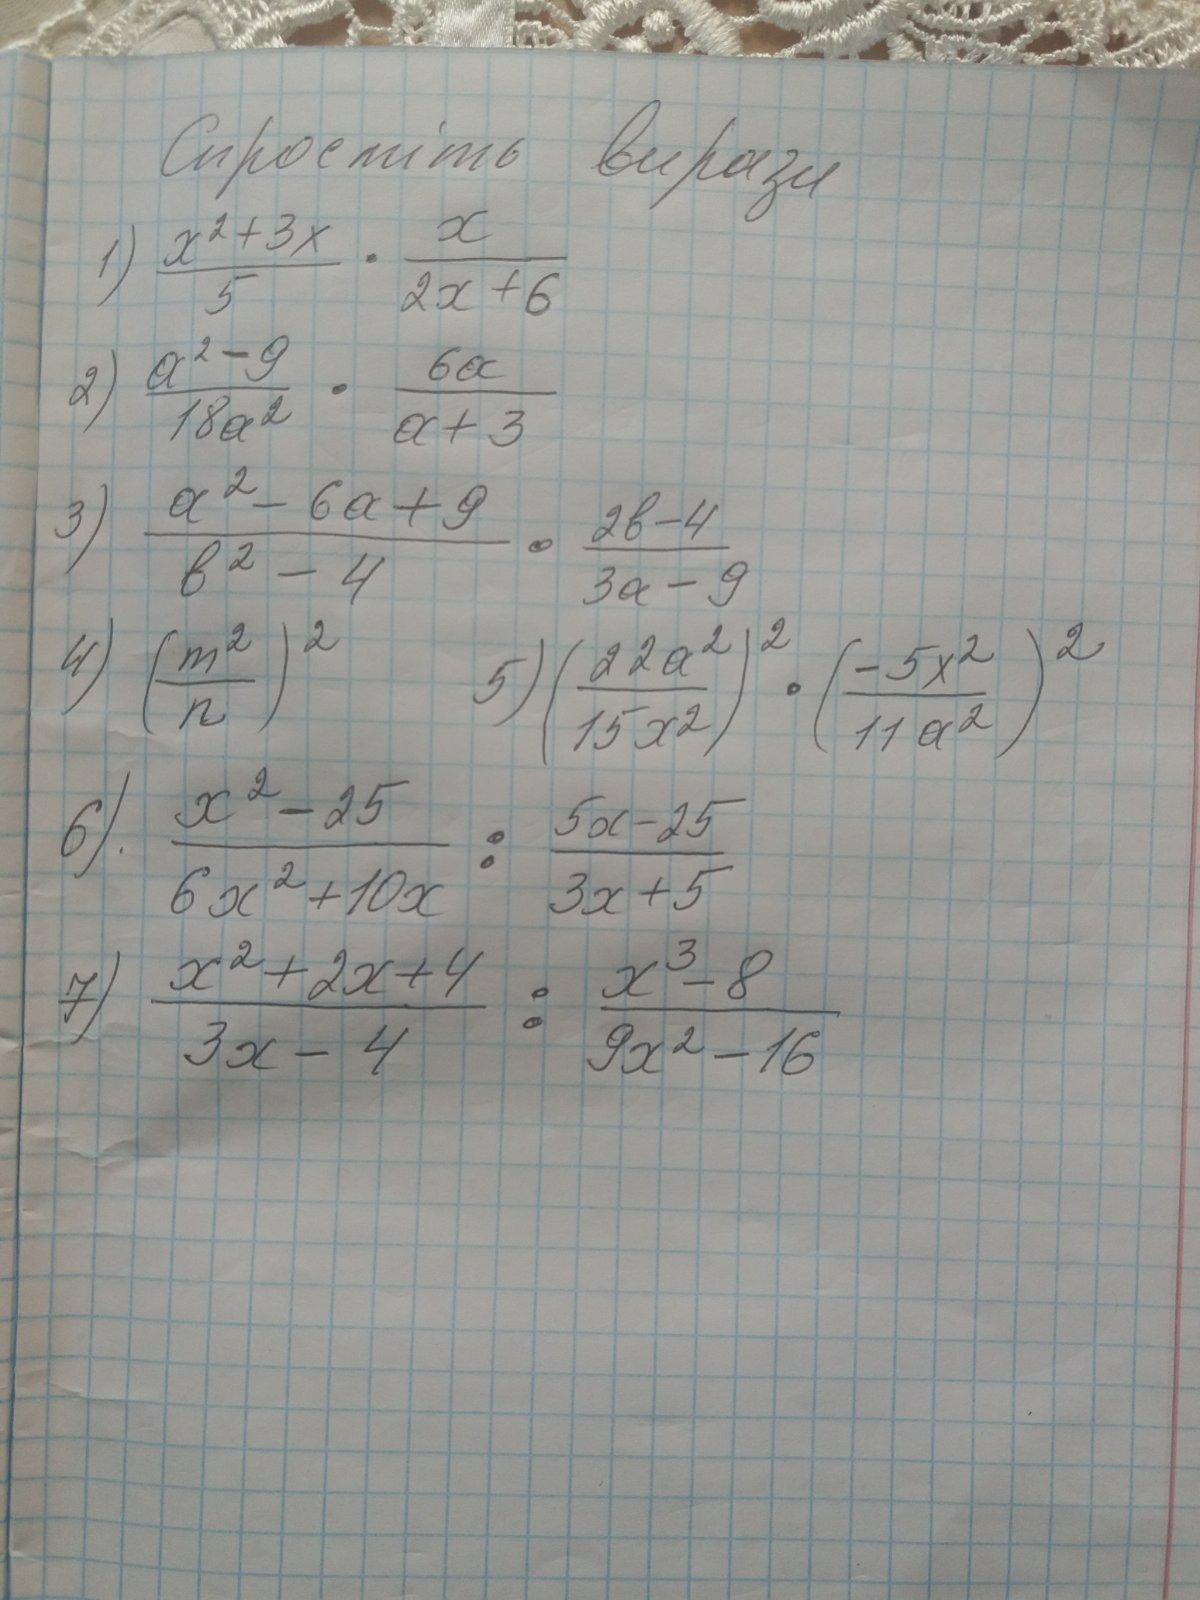 Спростіть вирази
1) (x²+3x)/5 · x/(2x+6)
2) (a²-9)/(18a²) · 6a/(a+3)
3) (a²-6a+9)/(в²-4) · (2в-4)/(3a-9)
4) (m²/n)² 5) (22a²/15x²)² · (-5x²/11a²)²
6). (x²-25)/(6x²+10x) : (5x-25)/(3x+5)
7) (x²+2x+4)/(3x-4) : (x³-8)/(9x²-16)